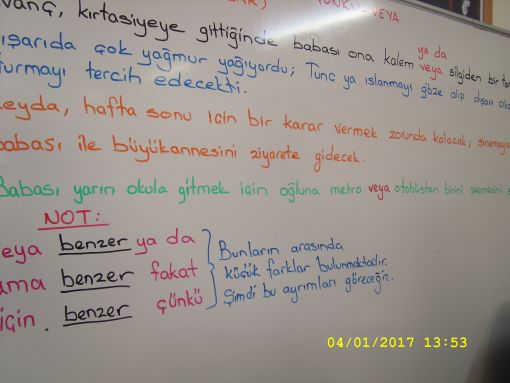 ÇÜNKÜ - VEYA
vanç, kırtasiyeye gittiğinde babası ona kalem veya silgiden bir
ya da
ışarıda çok yağmur yağıyordu; Tunç ya ıslanmayı göze alıp dışarı
turmayı tercih edecekti.
eyda, hafta sonu için bir karar vermek zorunda kalacak; sinemaya
babası ile büyükannesini ziyarete gidecek.
Babası yarın okula gitmek için oğluna metro veya otobüsten birini seçmesini
NOT:
eya benzer ya da
ama benzer fakat
için. benzer çünkü
Bunların arasında
küçük farklar bulunmaktadır.
Şimdi bu ayrımları göreceğiz.
04/01/2017 13:53